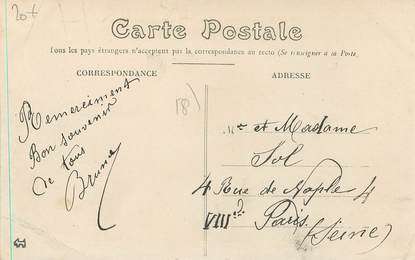 20f
Carte Postale
Tous les pays étrangers n'acceptent pas la correspondance au recto (Se renseigner à la Poste)
CORRESPONDANCE
ADRESSE
18)
Remerciment
Bon souvenir
de tous
Brune
Mr et Madame
Sol
4 Rue de Naple 4
VIIIe Paris
(Seine)